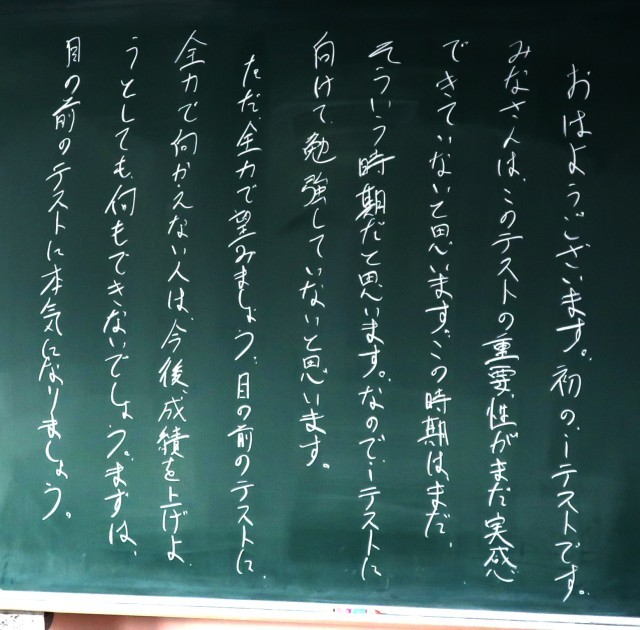 おはようございます。初の、iテストです。
みなさんは、このテストの重要性がまだ実感
できていないと思います。この時期は、まだ、
そういう時期だと思います。なので、iテストに
向けて、勉強していないと思います。
ただ、全力で望みましょう。目の前のテストに、
全力で向かえない人は、今後、成績を上げよ
うとしても、何もできないでしょう。まずは、
目の前のテストに本気になりましょう。